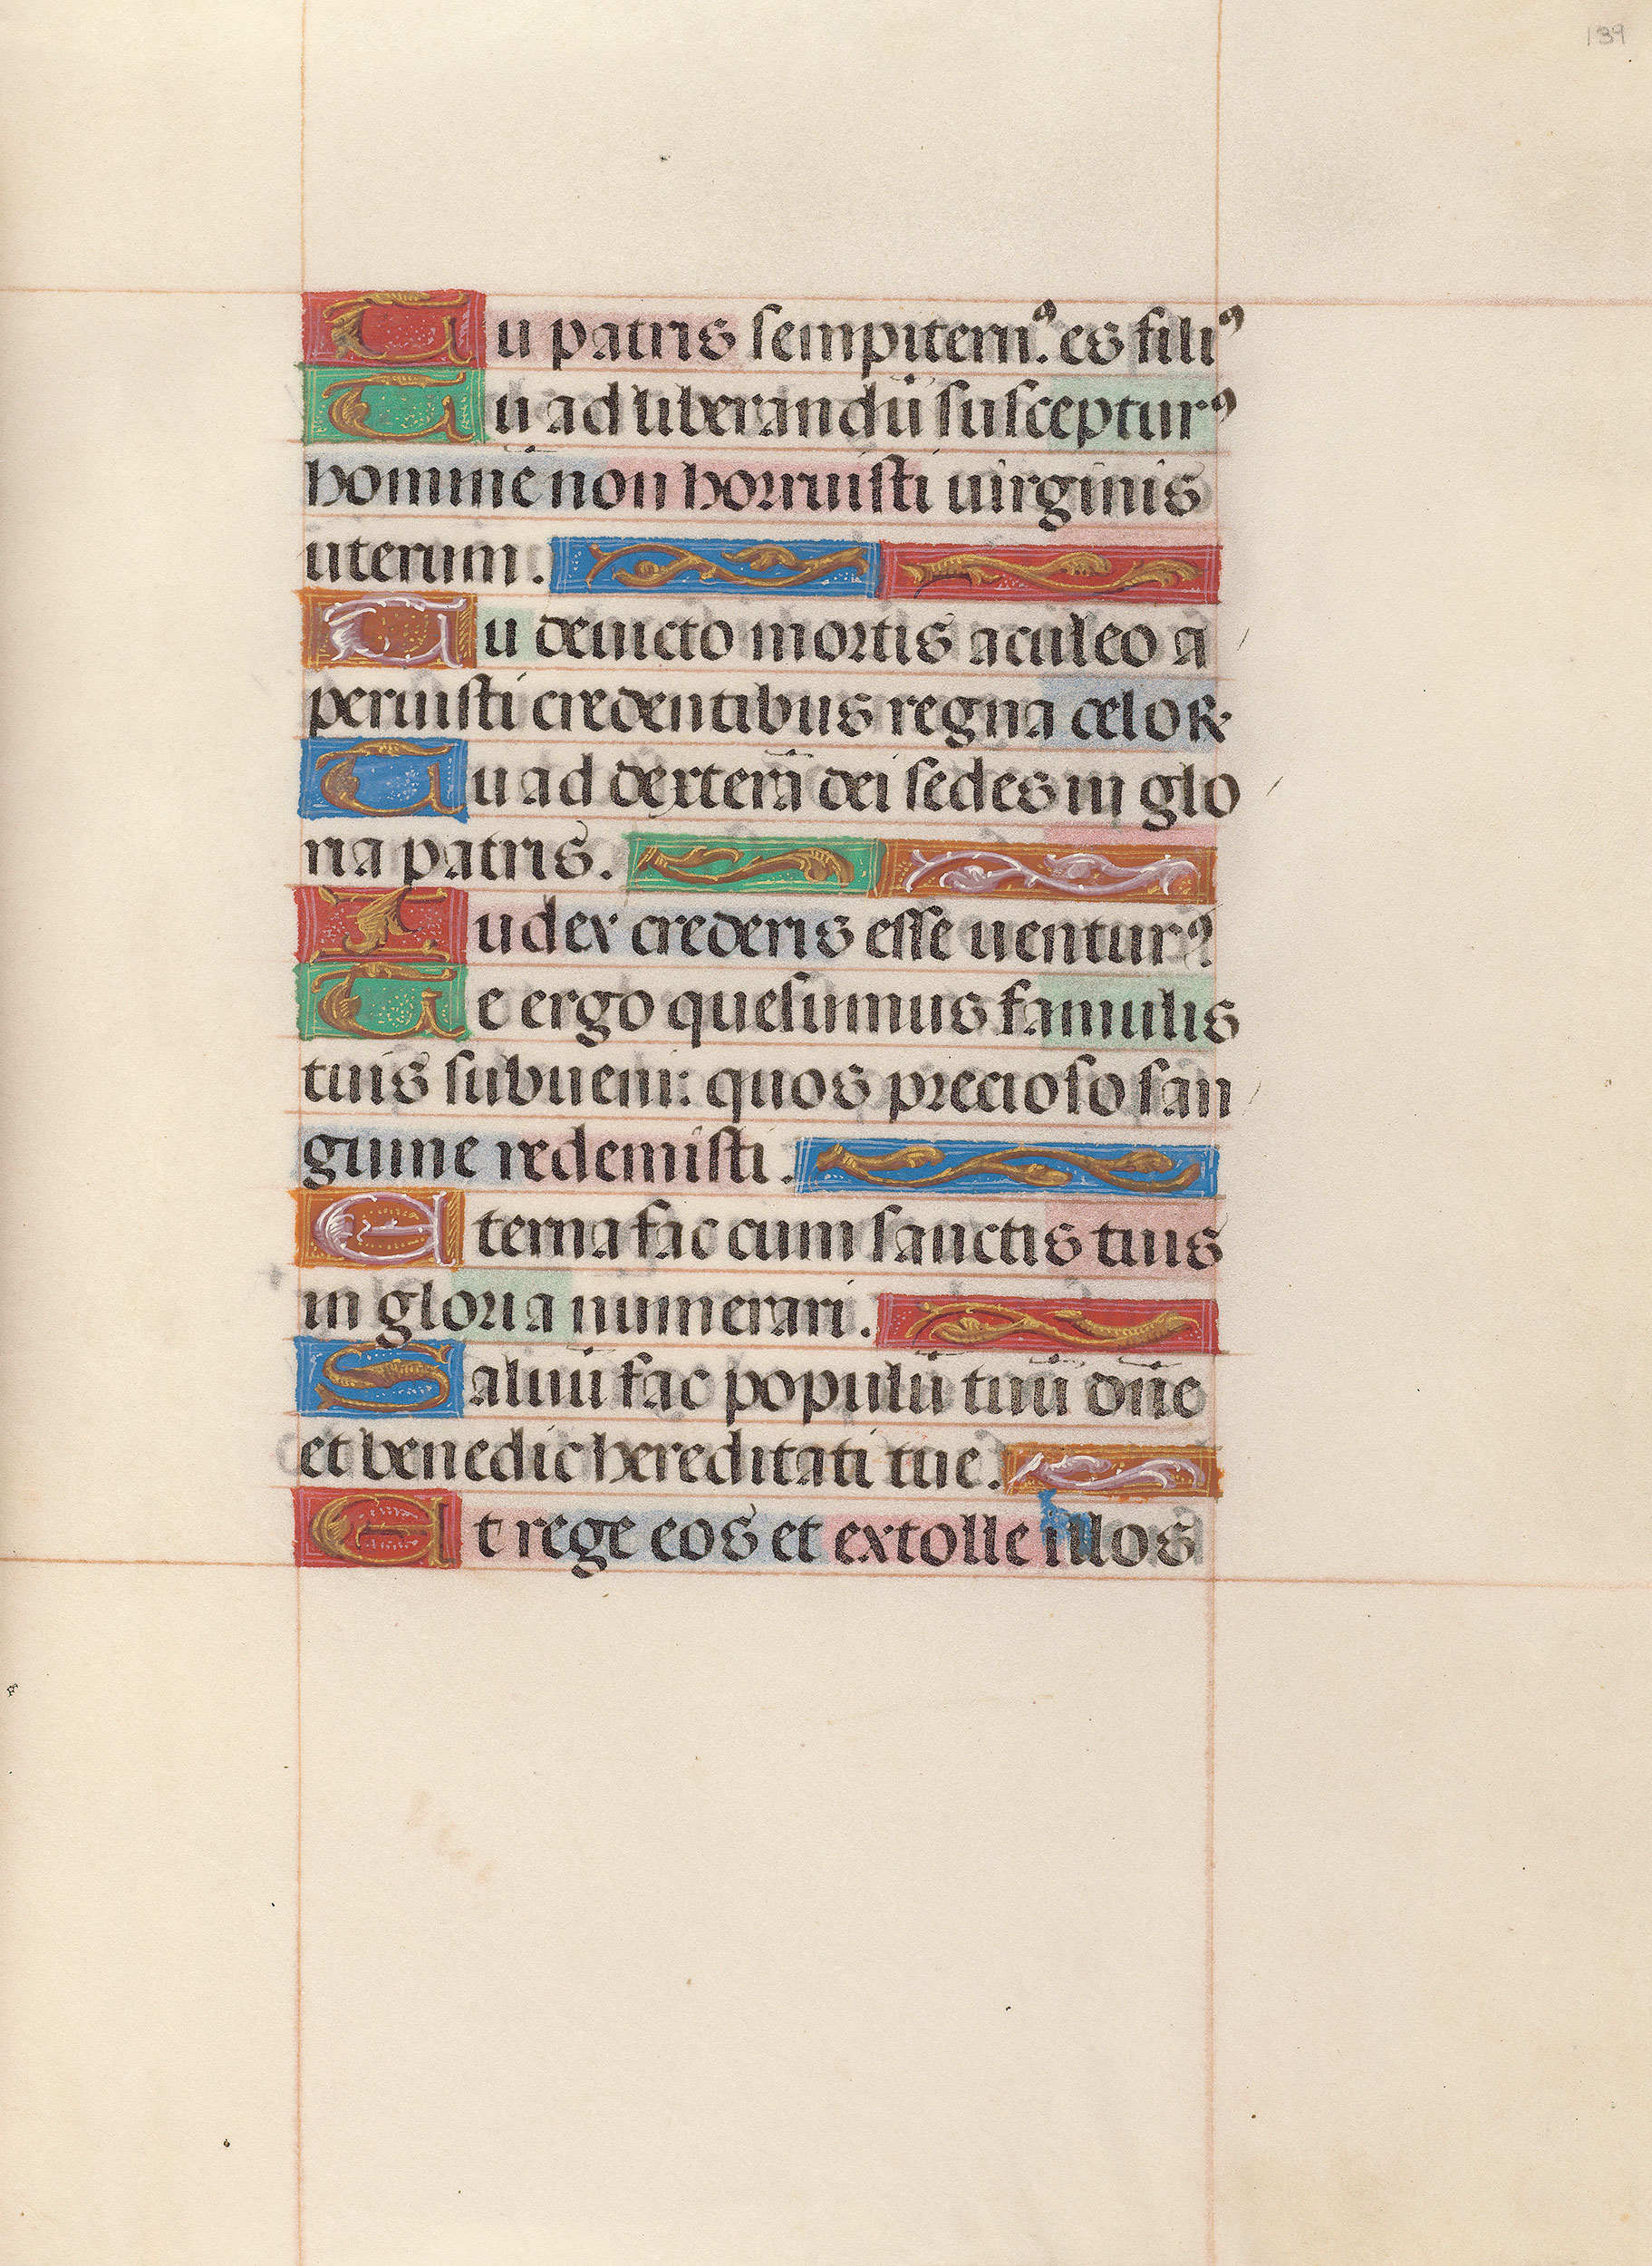 139
Tu patris sempiternꝰ. es filiꝰ
Tu ad liberandū suscepturꝰ
hominē non horruisti uirginis
uterum.
Tu deuicto mortis aculeo a
peruisti credentibus regna celoꝝ
Tu ad dexterā dei sedes in glo
ria patris.
Iudex crederis esse uenturꝰ
Te ergo quesumus famulis
tuis subueni: quos precioso san
guine redemisti.
Eterna fac cum sanctis tuis
in gloria numerari.
Saluū fac populū tuū dn̄e
et benedic hereditati tue.
Et rege eos et extolle illos